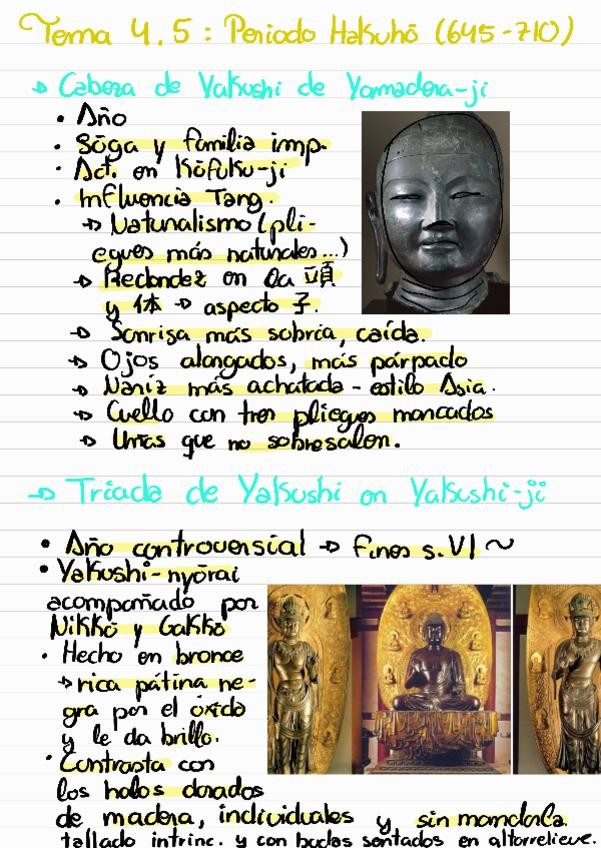 Tema 4.5: Periodo Hakuhō (645-710)
→ Cabeza de Yakushi de Yamadera-ji
• Año
• Sōga y familia imp.
• Act. en Kōfuku-ji
• Influencia Tang.
→ Naturalismo (pli-
egues más naturales...)
→ Redondez en la 頭
y 体 → aspecto 子.
→ Sonrisa más sobria, caída.
→ Ojos alargados, más párpado
→ Nariz más achatada - estilo Asia.
→ Cuello con tres pliegues marcados
→ Urnas que no sobresalen.
→ Triada de Yakushi en Yakushi-ji
• Año controversial → fines s.VI ~
• Yakushi-nyōrai
acompañado por
Nikkō y Gakkō
• Hecho en bronce
→ rica pátina ne-
gra por el óxido
y le da brillo.
• Contrasta con
los halos dorados
de madera, individuales y sin mandorla.
tallado intrinc. y con budas sentados en altorrelieve.